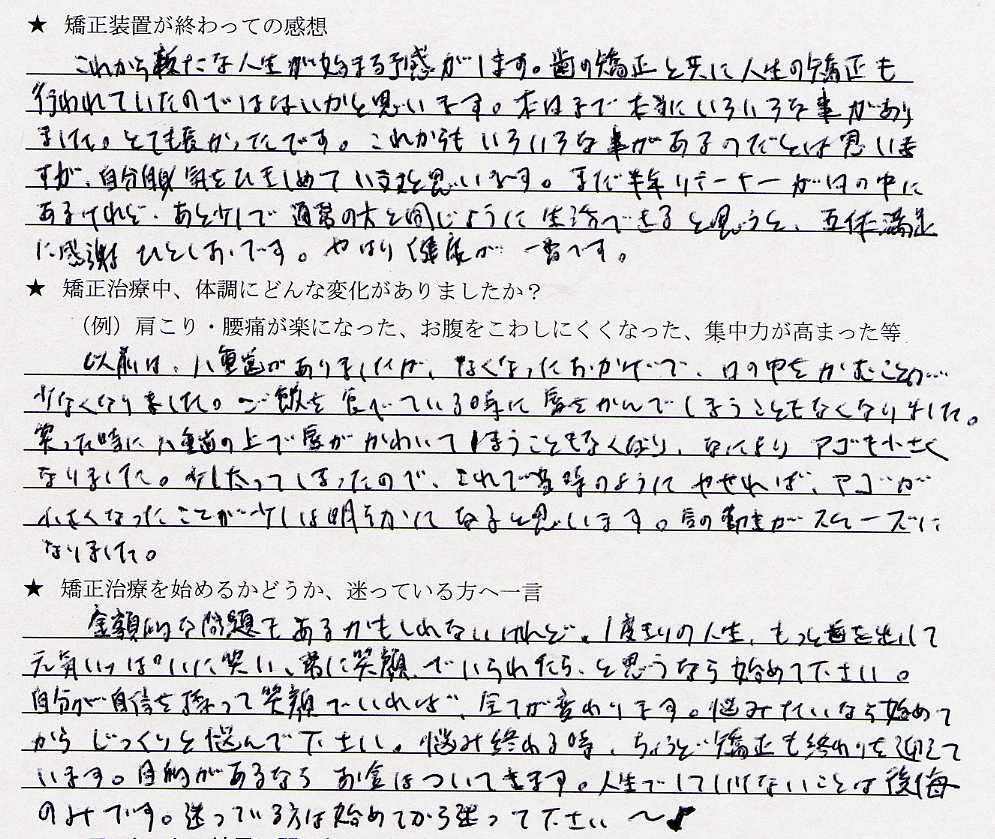 ★ 矯正装置が終わっての感想
これから新たな人生が始まる予感がします。歯の矯正と共に人生の矯正も
行われていたのではないかと思います。本日まで本当にいろいろな事があり
ました。とても長かったです。これからもいろいろな事があるのだとは思いま
すが、自分自身気をひきしめていきますと思います。まだ半年リテーナーが口の中に
あるけれど、あと少しで通常の方と同じように生活できると思うと、五体満足
に感謝ひとしおです。やはり健康が一番です。
★ 矯正治療中、体調にどんな変化がありましたか？
（例）肩こり・腰痛が楽になった、お腹をこわしにくくなった、集中力が高まった等
以前は、八重歯がありましたが、なくなったおかげで、口の中をかむことが…
少なくなりました。ご飯を食べている時に唇をかんでしまうこともなくなりました。
笑った時に八重歯の上で唇がかわいてしまうこともなくなり、なにより アゴも小さく
なりました。少し太ってしまったので、これで当時のようにやせれば、アゴが
小さくなったことが少しは明らかになると思います。唇の動きがスムーズに
なりました。
★ 矯正治療を始めるかどうか、迷っている方へ一言
金額的な問題もあるかもしれないけれど、1度きりの人生、もっと歯を出して
元気いっぱいに笑い、常に笑顔でいられたら、と思うなら始めて下さい。
自分が自信を持って笑顔でいれば、全てが変わります。悩みたいなら始めて
からじっくりと悩んで下さい。悩み終わる時、ちょうど矯正も終わりを迎えて
います。目的があるならお金はついてきます。人生でしていけないことは後悔
のみです。迷っている方は始めてから迷って下さい～♪